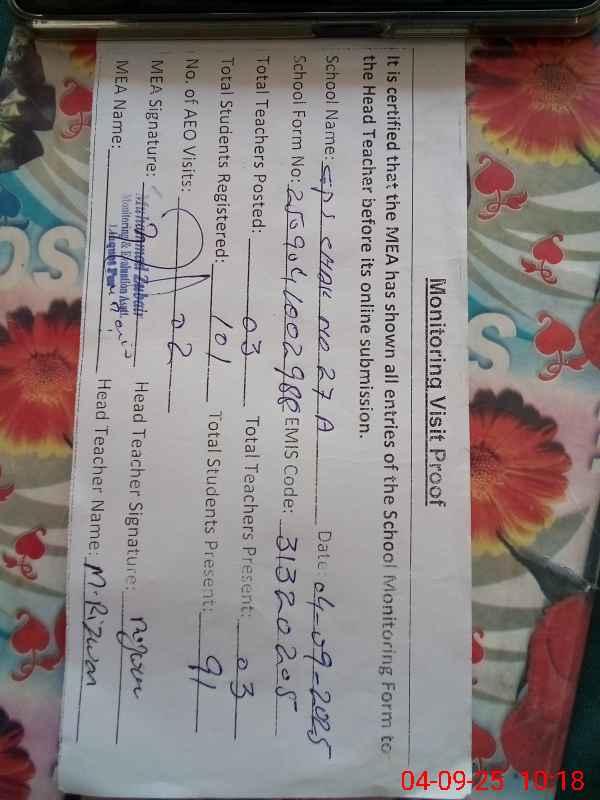 Monitoring Visit Proof
It is certified that the MEA has shown all entries of the School Monitoring Form to
the Head Teacher before its online submission.
School Name: GPS CHAK NO 27 A Date: 04-09-2025
School Form No: EMIS Code: 31320205
Total Teachers Posted: 03 Total Teachers Present: 03
Total Students Registered: 101 Total Students Present: 91
No. of AEO Visits: 02
MEA Signature: Head Teacher Signature:
Muhammad Zubair
Monitoring & Evaluation Asstt.
MEA Name: Head Teacher Name: M. Rizwan
04-09-25 10:18